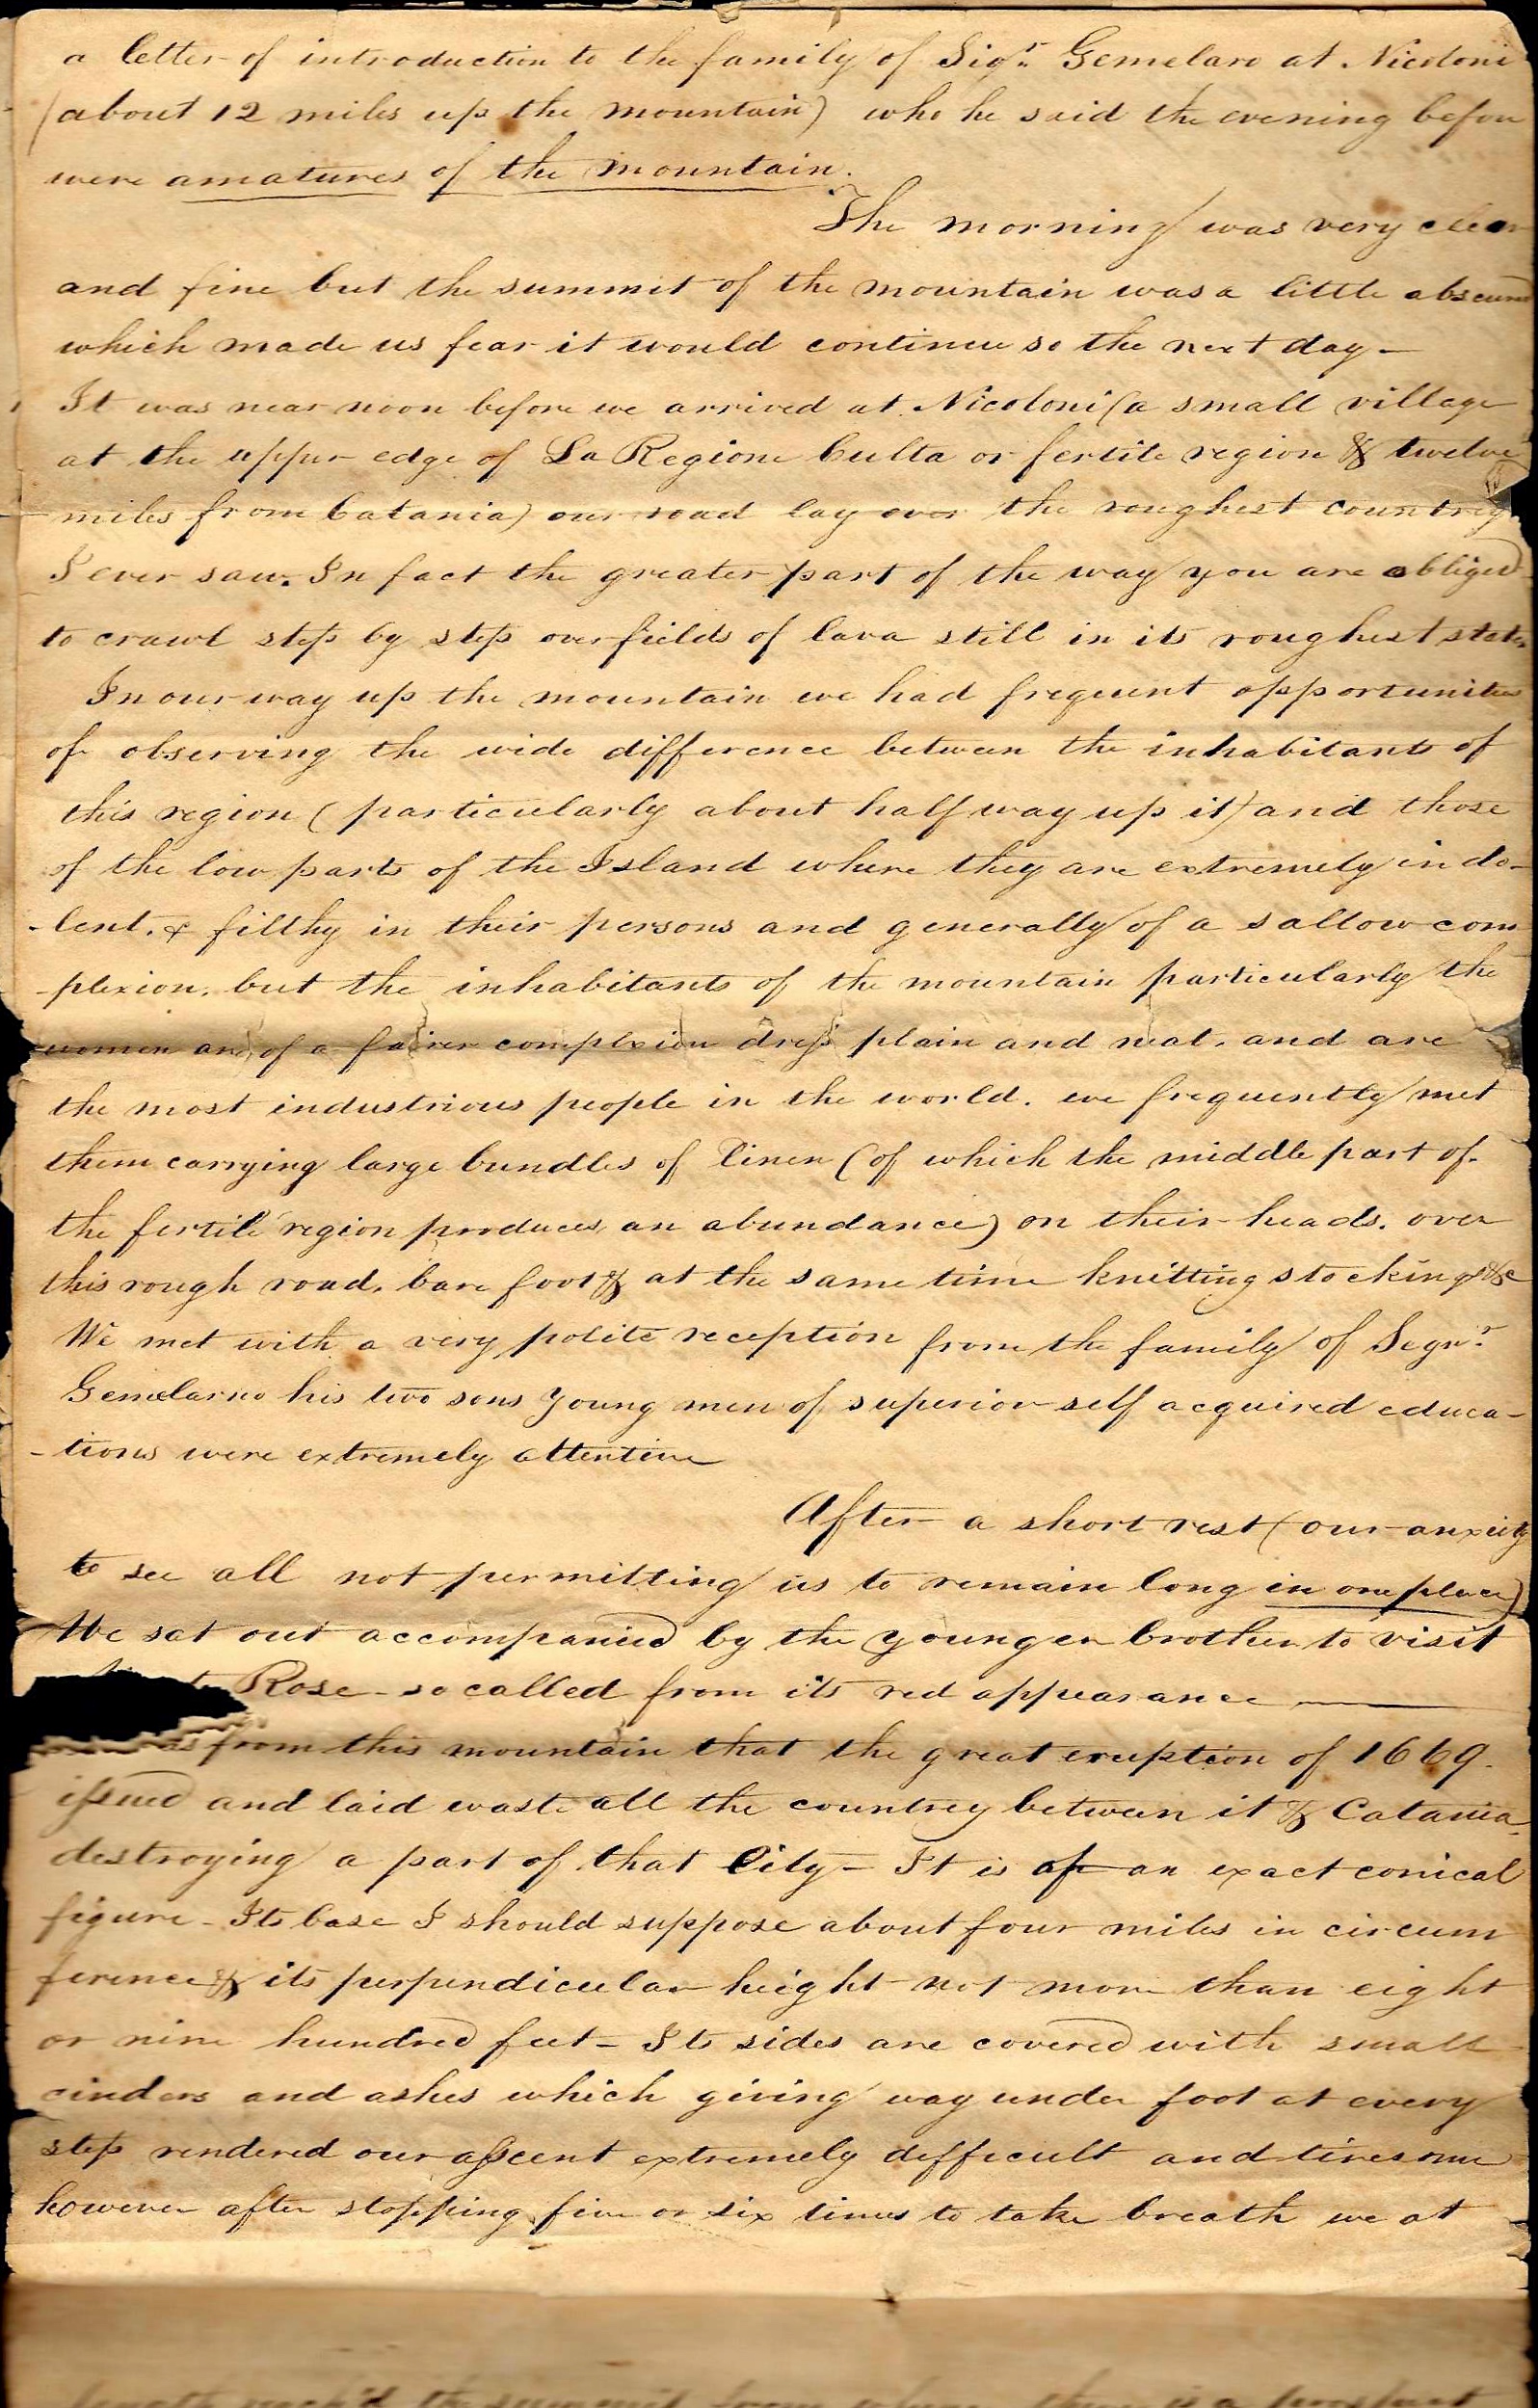 a letter of introduction to the family of Sigr. Gemelaro at Nicoloni
(about 12 miles up the mountain) who he said the evening before
were amatures of the mountain.
The morning was very clear
and fine but the summit of the mountain was a little obscured
which made us fear it would continue so the next day –
It was near noon before we arrived at Nicoloni (a small village
at the upper edge of La Regione Culta or fertile region & twelve
miles from Catania) our road lay over the roughest country
I ever saw. In fact the greater part of the way you are obliged
to crawl step by step over fields of lava still in its roughest state
In our way up the mountain we had frequent opportunities
of observing the wide difference between the inhabitants of
this region (particularly about half way up it) and those
of the low parts of the Island where they are extremely indo-
-lent. & filthy in their persons and generally of a sallow com
-plexion. but the inhabitants of the mountain particularly the
women are of a fairer complexion dress plain and neat. and are
the most industrious people in the world. we frequently met
them carrying large bundles of linen (of which the middle part of
the fertile region produces an abundance) on their heads. over
this rough road. bare foot & at the same time knitting stockings &c
We met with a very polite reception from the family of Segnr.
Gemelarno his two sons young men of superior self acquired educa-
-tions were extremely attentive
After a short rest (our anxiety
to see all not permitting us to remain long in one place)
We set out accompanied by the younger brother to visit
Rose – so called from its red appearance —
from this mountain that the great eruption of 1669.
issued and laid waste all the country between it & Catania.
destroying a part of that City – It is of an exact conical
figure – Its base I should suppose about four miles in circum
ference & its perpendicular height not more than eight
or nine hundred feet – Its sides are covered with small
cinders and ashes which giving way under foot at every
step rendered our asscent extremely defficult and tiresome
however after stopping five or six times to take breath we at